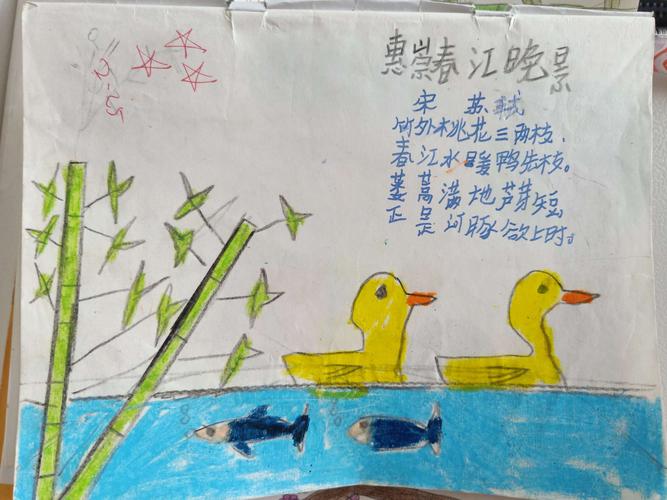 2-25
惠崇春江晚景
宋 苏轼
竹外桃花三两枝,
春江水暖鸭先枝。
蒌蒿满地芦芽短
正是河豚欲上时。